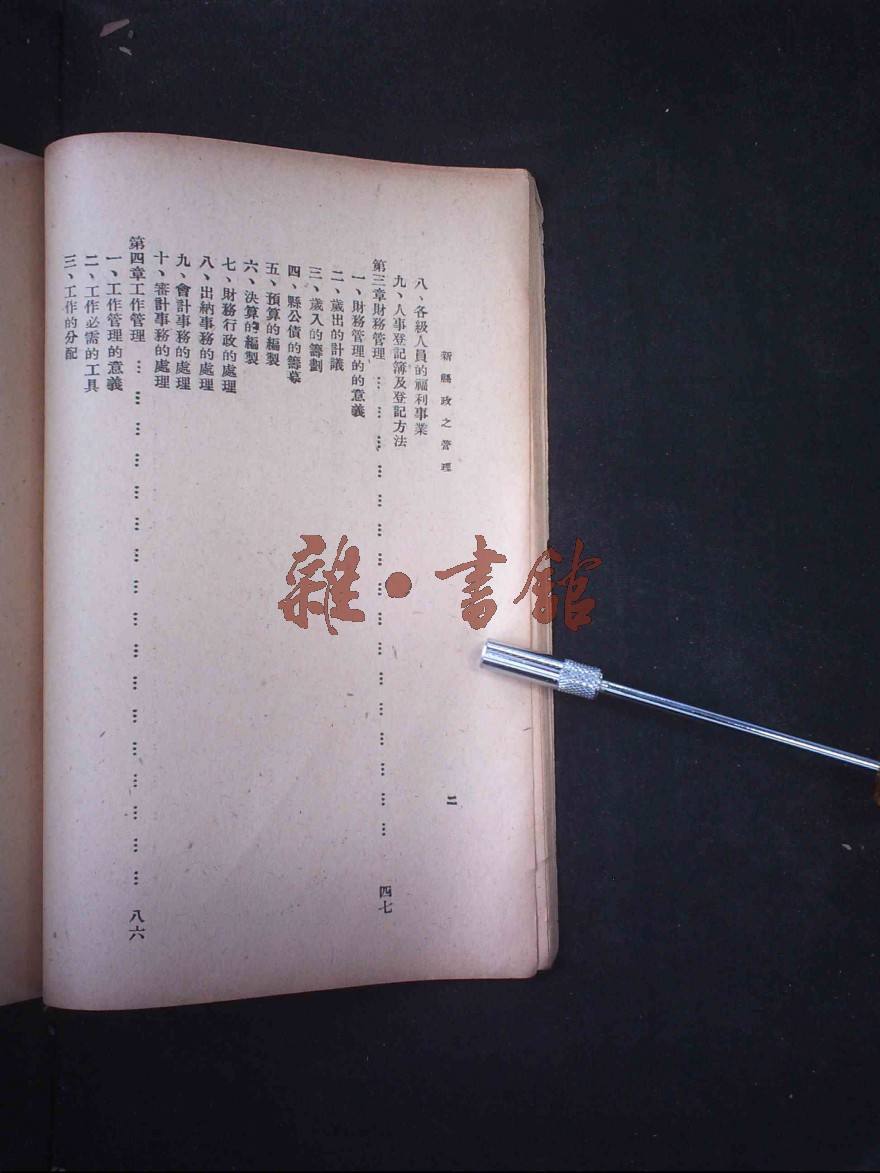 新縣政之管理
八、各級人員的福利事業
九、人事登記簿及登記方法
第三章財務管理 … … … … … … … … … … … … … … … … 四七
一、財務管理的的意義
二、歲出的計議
三、歲入的籌劃
四、縣公債的籌募
五、預算的編製
六、決算的編製
七、財務行政的處理
八、出納事務的處理
九、會計事務的處理
十、審計事務的處理
第四章工作管理 … … … … … … … … … … … … … … … … … … 八六
一、工作管理的意義
二、工作必需的工具
三、工作的分配
二
雜·書館